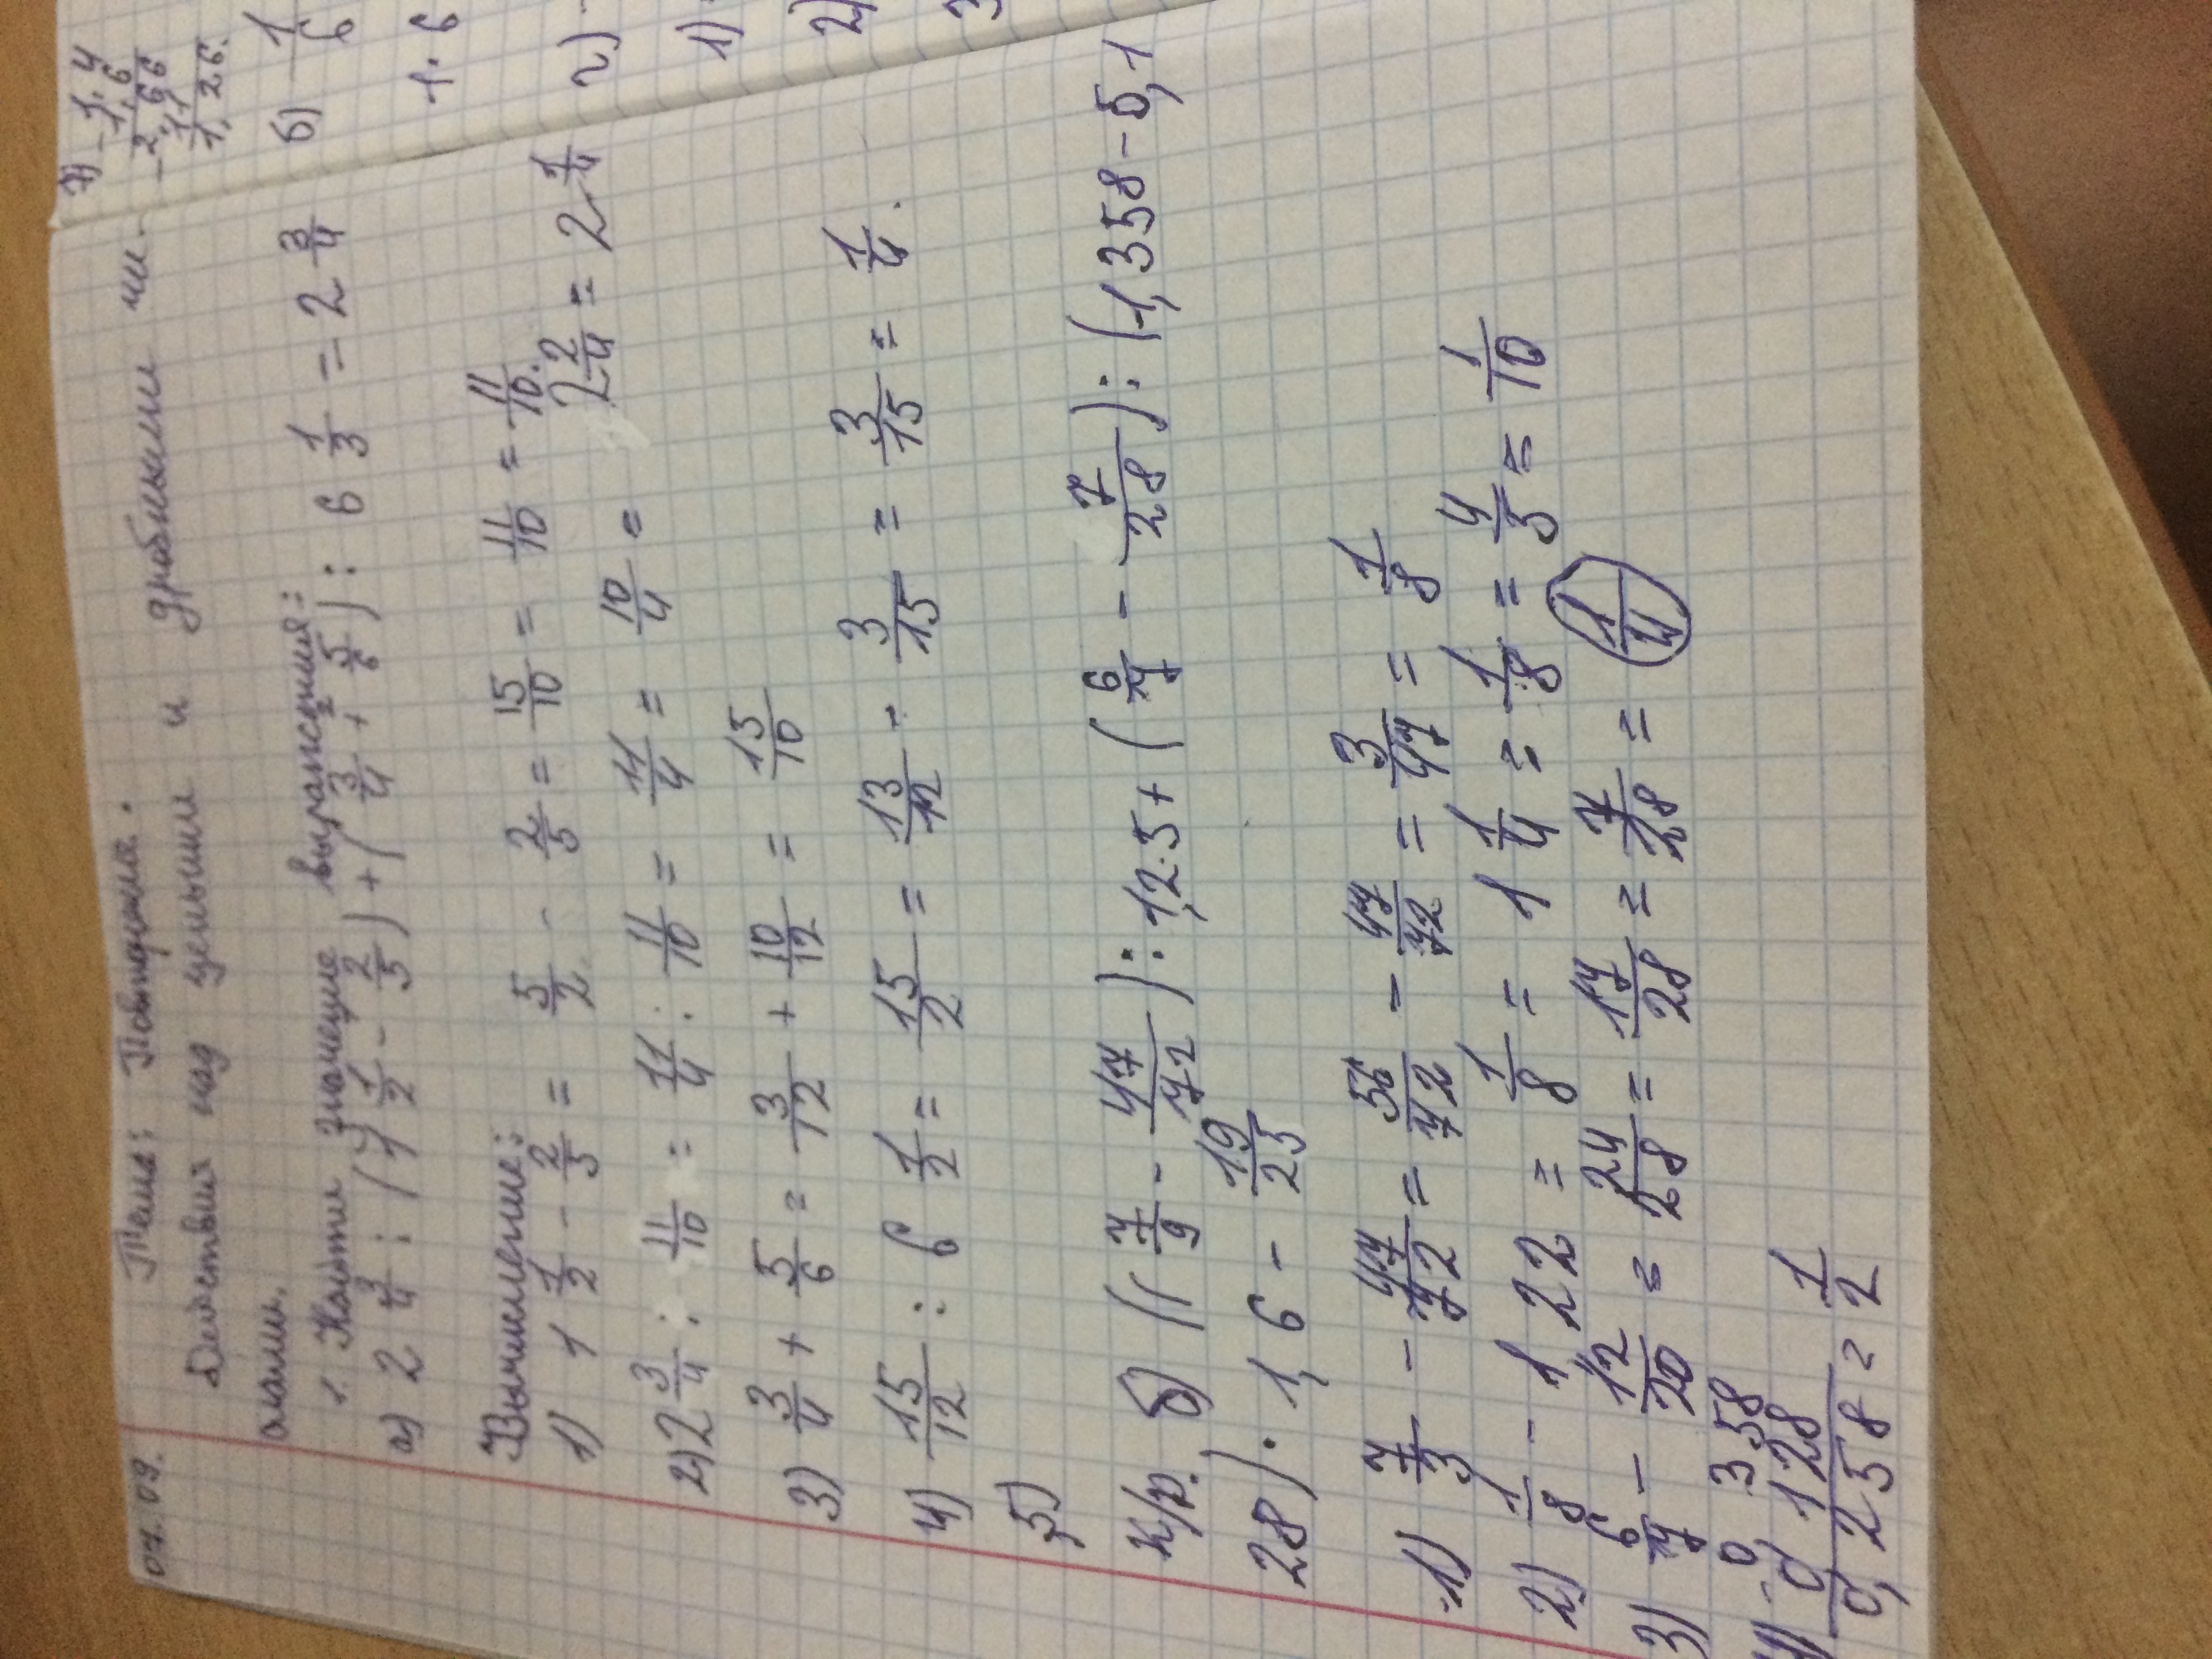 07.09. Тема: Повторение.
Действия над целыми и дробными чи-
слами.
1. Найти значение выражения:
а) 2 3/4 : (1 1/2 - 2/5) + (3/4 + 5/6) : 6 1/3 = 2 3/4
Вычисление:
1) 1 1/2 - 2/5 = 5/2 - 2/5 = 15/10 = 11/10 = 11/10.
2) 2 3/4 : 11/10 = 11/4 : 11/10 = 11/4 = 10/4 = 2 2/4 = 2 1/4
3) 3/4 + 5/6 = 3/12 + 10/12 = 13/10
4) 15/12 : 6 1/2 = 15/2 = 13/12 - 3/15 = 3/15 = 1/4.
5)
к/р. б) ((7/9 - 47/72) : 1,25 + (6/7 - 7/28) : (1,358-5,1
28) · 1,6 - 19/25
1) 7/3 - 47/72 = 56/72 - 47/72 = 3/47 = 1/8
2) 1/8 - 122 = 1/8 = 1 1/4 = 1/8 = 4/3 = 1/10
3) 6/7 - 12/20 = 24/28 = 17/28 = 7/28 = 1/4
4) - 0 358
0 128
0,258 = 1/2
7) - 1,4
1,6
- 2,66
1,1
1,26.
б) 1/6
1·6
2) -
1)
2)
3